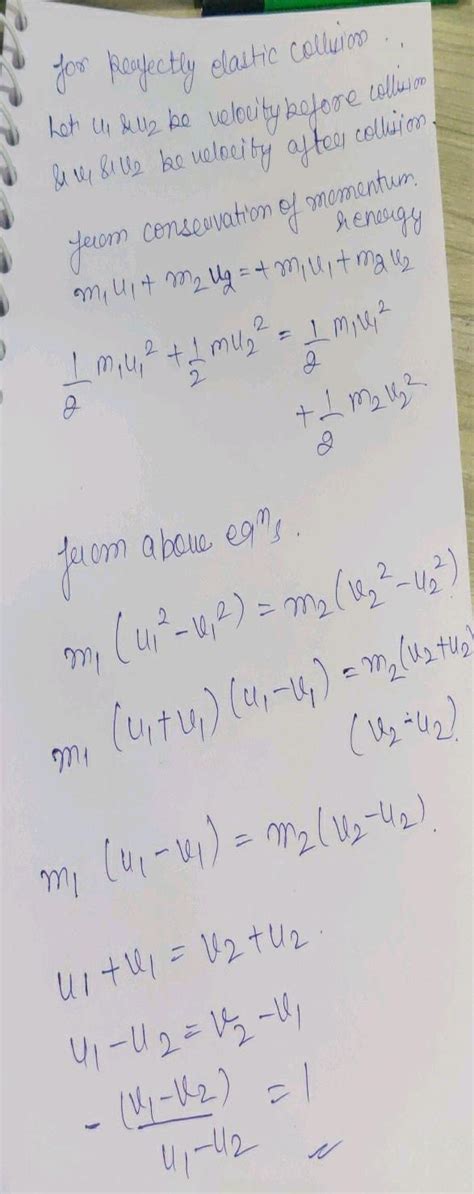 for perfectly elastic collision.
Let u₁ & u₂ be velocity before collision
& v₁ & v₂ be velocity after collision.
from conservation of momentum
& energy
m₁u₁ + m₂u₂ = + m₁v₁ + m₂v₂
1/2 m₁u₁² + 1/2 mu₂² = 1/2 m₁v₁²
+ 1/2 m₂v₂²
from above eqⁿs.
m₁ (u₁² - v₁²) = m₂ (v₂² - u₂²)
m₁ (u₁ + v₁) (u₁ - v₁) = m₂ (v₂ + u₂)
(v₂ - u₂).
m₁ (u₁ - v₁) = m₂ (v₂ - u₂).
u₁ + v₁ = v₂ + u₂.
u₁ - u₂ = v₂ - v₁
- (v₁ - v₂) / u₁ - u₂ = 1